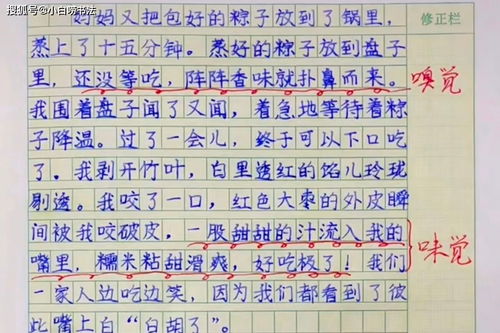 搜狐号@小白唠书法
妈妈又把包好的粽子放到了锅里，
修正栏
蒸上了十五分钟。蒸好的粽子放到盘子
里，还没等吃，阵阵香味就扑鼻而来。
嗅觉
我围着盘子闻了又闻，着急地等待着粽
子降温。过了一会儿，终于可以下口吃
了。我剥开竹叶，白里透红的馅儿玲珑
剔透。我咬了一口，红色大枣的外皮瞬
间被我咬破皮，一股甜甜的汁流入我的
味觉
嘴里，糯米粘甜滑爽，好吃极了！我们
一家人边吃边笑，因为我们都看到了彼
此嘴上白“白胡了”。